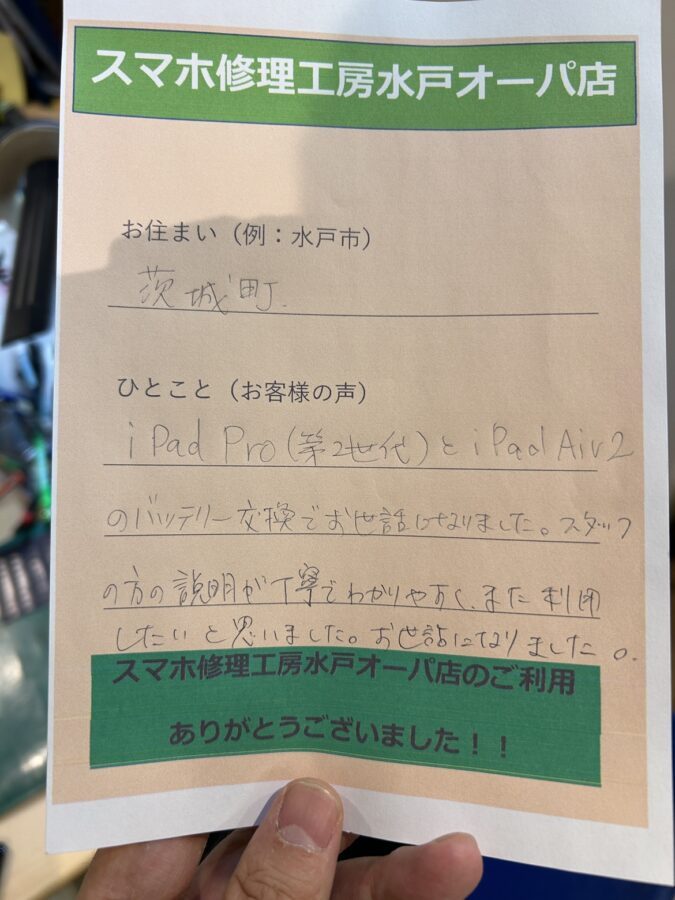 スマホ修理工房水戸オーパ店
お住まい（例：水戸市）
茨城町.
ひとこと（お客様の声）
iPad Pro(第2世代)とiPad Air2
のバッテリー交換でお世話になりました。スタッフ
の方の説明が丁寧でわかりやすく、また利用
したいと思いました。お世話になりました。
スマホ修理工房水戸オーパ店のご利用
ありがとうございました！！